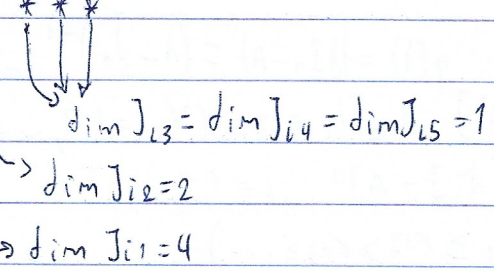 * * *
dim J_{i3} = dim J_{i4} = dim J_{i5} = 1
→ dim J_{i2} = 2
→ dim J_{i1} = 4